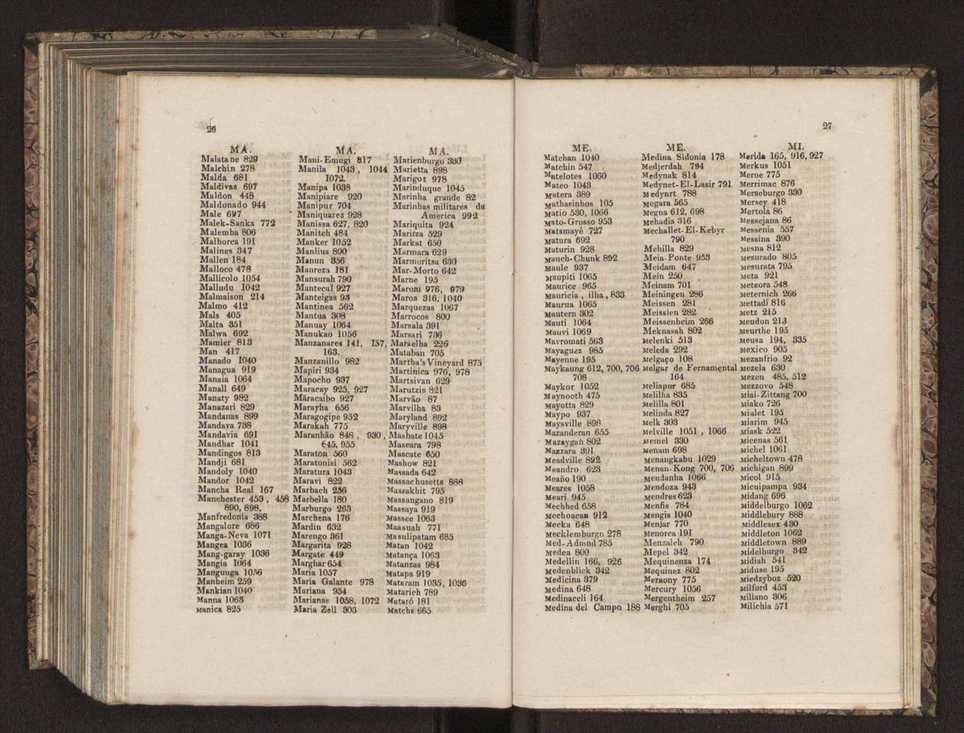 26
MA.
Malatane 829
Malchin 278
Malda 681
Maldivas 697
Maldon 448
Maldonado 944
Male 697
Malek-Sanka 772
Malemba 806
Malhorca 191
Malines 347
Mallen 184
Malloco 478
Mallicolo 1054
Malludu 1042
Malmaison 214
Malmo 412
Mals 405
Malta 351
Malwa 692
Mamier 813
Man 417
Manado 1040
Managua 919
Manaia 1064
Manall 649
Manaty 982
Manazari 829
Mandanas 899
Mandava 738
Mandavia 691
Mandhar 1041
Mandingos 813
Mandji 681
Mandoly 1040
Mandor 1042
Mancha Real 167
Manchester 453, 458
890, 898,
Manfredonia 388
Mangalore 686
Manga-Neva 1071
Mangea 1036
Mang-garay 1036
Mangia 1064
Mangunga 1056
Manheim 259
Mankian 1040
Manna 1063
Manica 825
MA.
Mani-Emugi 817
Manila 1043, 1044
1072.
Manipa 1038
Manipiare 920
Manipur 704
Maniquarez 928
Manissa 627, 820
Manitch 484
Manker 1052
Manlius 890
Manun 356
Manreza 181
Mansurah 790
Mantecal 927
Manteigas 93
Mantinea 562
Mantua 308
Manuay 1064
Manukao 1056
Manzanares 141, 157,
163.
Manzanillo 982
Mapiri 934
Mapocho 937
Maracay 925, 927
Máracaibo 927
Marayha 656
Maragogipe 952
Marakah 775
Maranhão 848, 930,
645, 955
Maraton 560
Maratonisi 562
Maratura 1043
Maravi 822
Marbach 256
Marbella 180
Marburgo 263
Marchena 176
Mardin 632
Marengo 361
Margarita 928
Margate 449
Marghar 654
Maria 1057
Maria Galante 978
Mariana 954
Marianas 1058, 1072
Maria Zell 303
MA.
Marienburgo 330
Marietta 898
Marigot 978
Marinduque 1045
Marinha grande 82
Marinhas militares da
America 992
Mariquita 924
Maritza 529
Markat 650
Marmara 629
Marmoritsa 630
Mar-Morto 642
Marne 195
Maroni 976, 979
Maros 316, 1040
Marquezas 1067
Marrocos 800
Marsala 391
Marsari 736
Marselha 226
Mataban 705
Martha's Vineyard 875
Martinica 976, 978
Martsivan 629
Marutzis 821
Marvão 87
Marvilha 83
Maryland 892
Maryville 898
Masbate 1045
Mascara 798
Mascate 650
Mashow 821
Massada 642
Massachusetts 888
Massakhit 795
Massangano 819
Massaya 919
Massee 1063
Massuah 771
Masulipatam 685
Matan 1042
Matança 1063
Matanzas 984
Matapa 919
Mataram 1035, 1036
Matarieh 789
Mataró 181
Matcha 665
27
ME.
Matchan 1040
Matchin 547
Matelotes 1060
Mateo 1043
Matera 389
Mathasinhos 105
Matio 530, 1066
Mato-Grosso 953
Matsmayé 727
Matura 692
Maturin 928
Mauch-Chunk 892
Maule 937
Maupiti 1065
Maurice 965
Mauricia, ilha, 833
Maurua 1065
Mautern 302
Mauti 1064
Mauvi 1069
Mavromati 563
Mayaguez 985
Mayenne 195
Maykaung 612, 700, 706
708
Maykor 1052
Maynooth 475
Mayotta 829
Maypo 937
Maysville 898
Mazanderan 655
Mazaygan 802
Mazzara 391
Meadville 892
Meandro 623
Meaño 190
Meares 1058
Meari 945
Mechhed 658
Mechoacan 912
Mecka 648
Mecklemburgo 278
Med-Admud 785
Medea 800
Medellin 166, 926
Medenblick 342
Medicina 379
Medina 648
Medinaceli 164
Medina del Campo 188
ME.
Medina Sidonia 178
Medjerdah 794
Medynak 814
Medynet-El-Lasir 791
Medynet 788
Megara 565
Megna 612, 698
Mehadia 316
Mechallet-El-Kebyr
790
Mehilla 829
Meia-Ponte 953
Meidam 647
Mein 250
Meinam 701
Meiningen 286
Meissen 281
Meissien 282
Meissenheim 266
Meknasah 802
Melenki 513
Meleda 292
Melgaço 108
Melgar de Fernamental
164
Meliapur 685
Melilha 835
Melilla 801
Melinda 827
Melk 303
Melville 1051, 1066
Memel 330
Menam 698
Menangkabu 1029
Menan-Kong 700, 706
Mendanha 1066
Mendoza 943
Mendres 623
Menfis 784
Mengis 1040
Menjar 770
Menorca 191
Menzaleh 790
Mepel 342
Mequinenza 174
Mequinez 802
Meraony 775
Mercury 1056
Mergentheim 257
Merghi 705
MI.
Merida 165, 916, 927
Merkus 1051
Meroe 775
Merrimac 876
Merseburgo 330
Mersey 418
Mertola 86
Messejana 86
Messenia 557
Messina 390
Mesna 812
Mesurado 805
Mesurata 795
Meta 921
Meteora 548
Meternich 266
Mettadi 816
Metz 215
Meudon 213
Meurthe 195
Meusa 194, 335
Mexico 905
Mezanfrio 92
Mezela 630
Mezen 485, 512
Mezzovo 548
Miai-Zittang 700
Miako 726
Mialet 195
Miarim 945
Miask 522
Micenas 561
Michel 1061
Micheltown 478
Michigan 899
Micol 915
Micuipampa 934
Midang 696
Middelburgo 1062
Middlebury 888
Middlesex 430
Middleton 1062
Middletown 889
Midelburgo 342
Midiah 541
Miduse 195
Miedzyboz 520
Milford 453
Miliano 306
Milichia 571